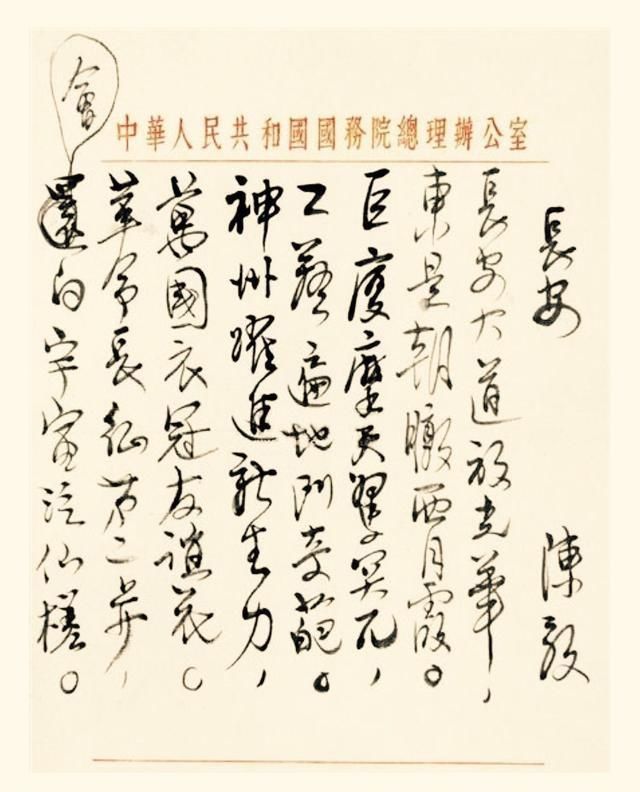 中華人民共和國國務院總理辦公室
長安
陳毅
長安大道放光華，
東是朝暾西月霞。
巨廈摩天突兀，
工藝遍地鬥奇葩。
神州躍進新生力，
萬國衣冠友誼花。
革命長征第二步，
會
還向宇宙泛仙槎。